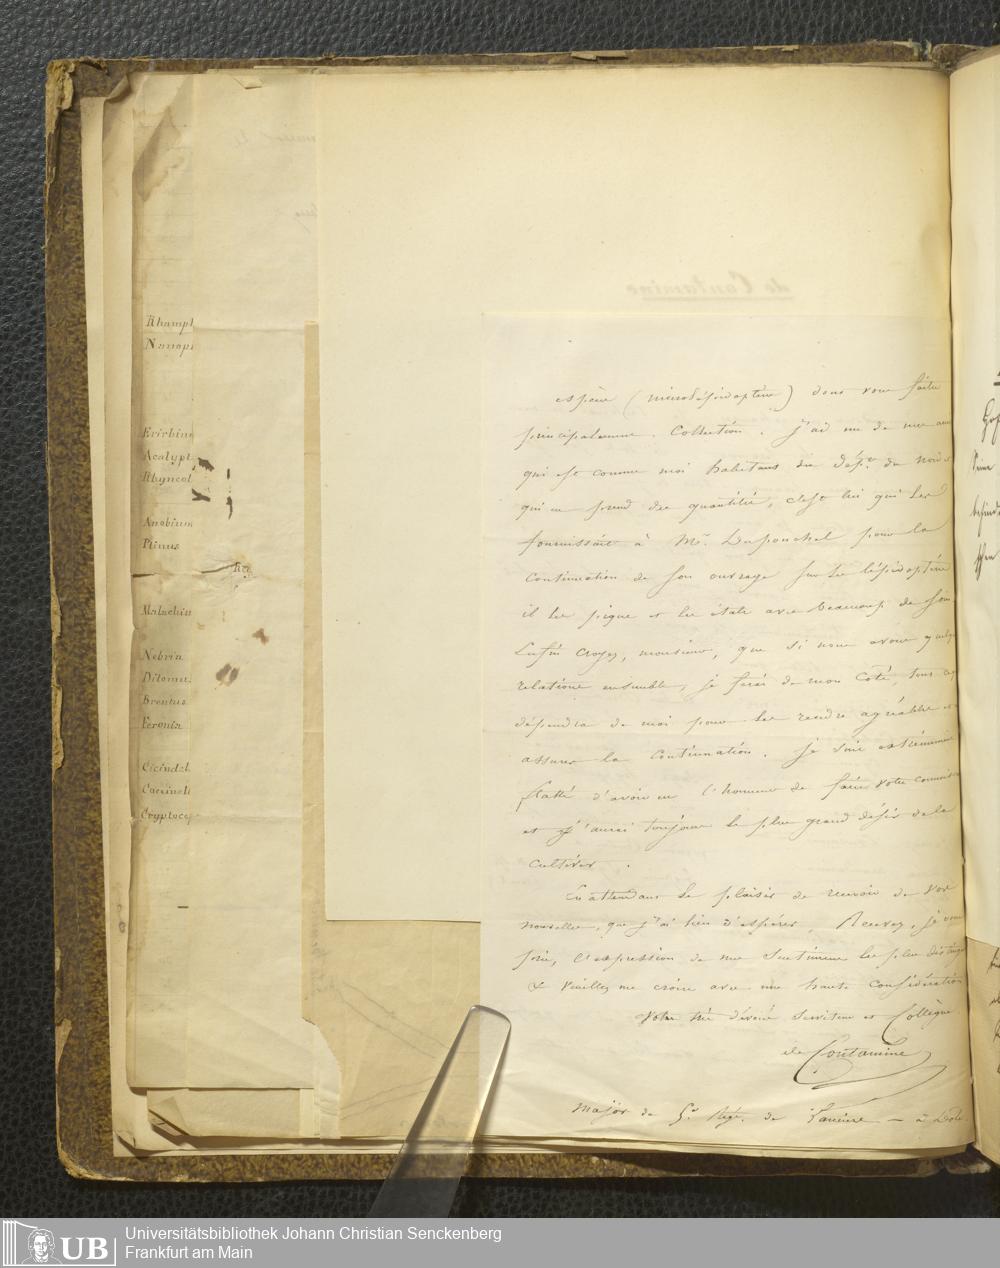 Rhamph
Nanoph
Erirhin
Acalypt
Rhyncol
Anobium
Ptinus
Malachiu
Nebria
Ditomu
Brentus
Feronia
Cicindel
Coccinell
Cryptocep
de Contamine
espèce (microlépidoptère) dont vous faites
principalement Collection. J'ai un de mes amis
qui est comme moi habitant du dépt. du nord
qui en prend des quantités, c'est lui qui les
fournissait à Mr. Duponchel pour la
continuation de son ouvrage sur les lépidoptères
il les pique et les étale avec beaucoup de soin
Enfin croyez, monsieur, que si nous avons quelques
relations ensemble, je ferai de mon côté, tout ce
dépendra de moi pour les rendre agréables et
assurer la continuation. Je suis extrêmement
flatté d'avoir eu l'honneur de faire votre connaiss
et j'aurai toujours le plus grand désir de la
cultiver.
En attendant le plaisir de recevoir de vos
nouvelles, que j'ai lieu d'espérer, Recevez, je vous
prie, l'expression de mes sentiments les plus disting
& veuillez me croire avec une haute considération
Votre très dévoué serviteur et Collègue.
de Contamine
Major du 5e Régt. de Lanciers — à Dôle
Universitätsbibliothek Johann Christian Senckenberg
UB Frankfurt am Main